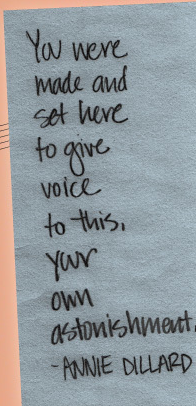 You were
made and
set here
to give
voice
to this,
your
own
astonishment.
-ANNIE DILLARD